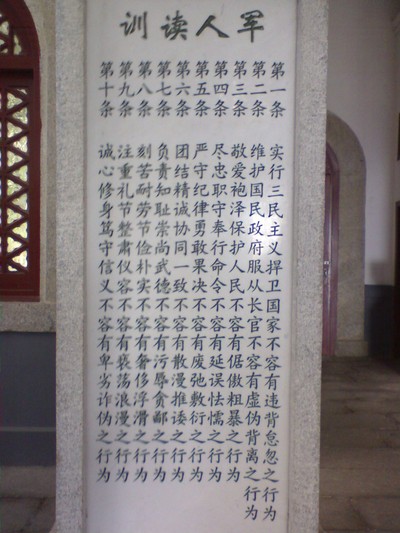 军人读训
第一条 实行三民主义捍卫国家不容有违背怠忽之行为
第二条 维护国民政府服从长官不容有虚伪背离之行为
第三条 敬爱袍泽保护人民不容有倨傲粗暴之行为
第四条 尽忠职守奉行命令不容有延误怯懦之行为
第五条 严守纪律勇敢果决不容有废弛敷衍之行为
第六条 团结精诚协同一致不容有散漫推诿之行为
第七条 负责知耻崇尚武德不容有污辱贪鄙之行为
第八条 刻苦耐劳节俭朴实不容有奢侈浮滑之行为
第九条 注重礼节整肃仪容不容有亵荡浪漫之行为
第十条 诚心修身笃守信义不容有卑劣诈伪之行为